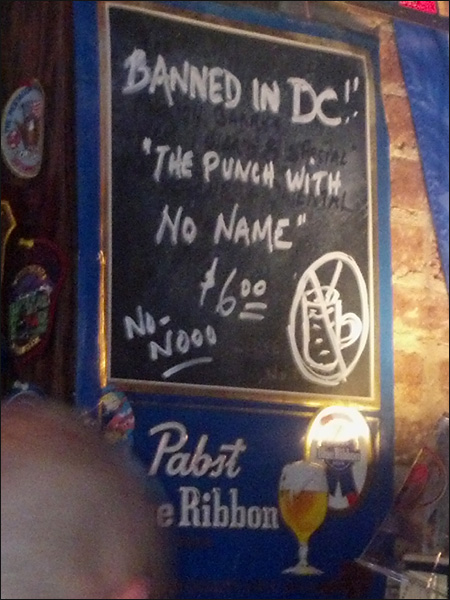 BANNED IN DC!!
"THE PUNCH WITH
NO NAME"
$6.00
NO-
NOOO
Pabst
e Ribbon